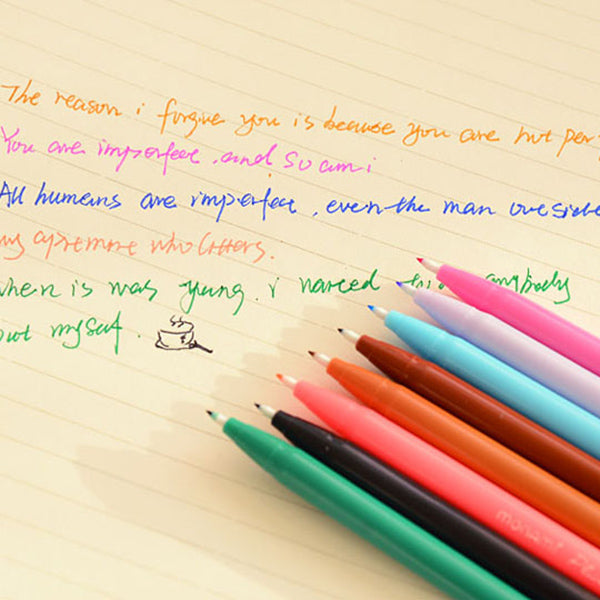 The reason i forgive you is because you are not per
You are imperfect .and so am i
All humans are imperfect . even the man outside
my apartment who litters.
when is was young . i
anybody
but myself .
monami